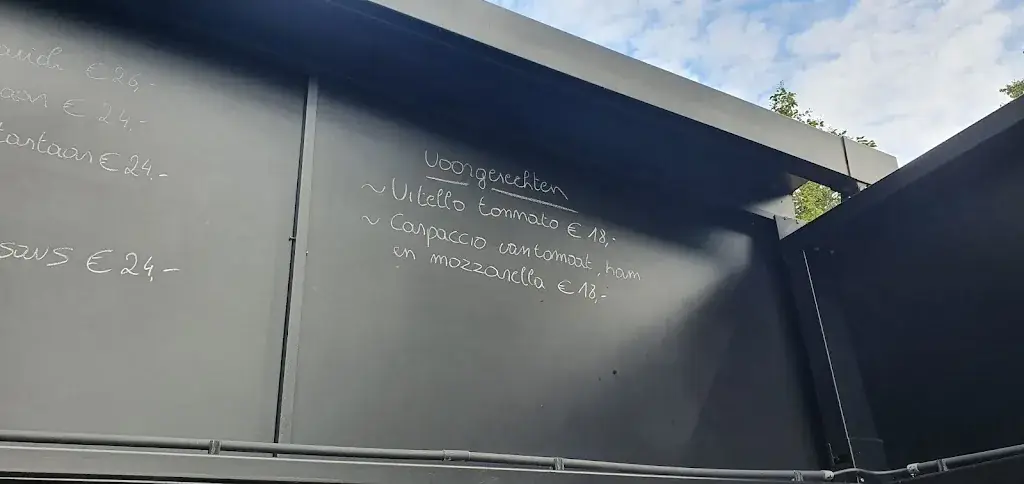 € 26,-
€ 24,-
€ 24,-
saus € 24,-
Voorgerechten
~ Vitello tonnato € 18,-
~ Carpaccio van tomaat, ham
en mozzarella € 18,-